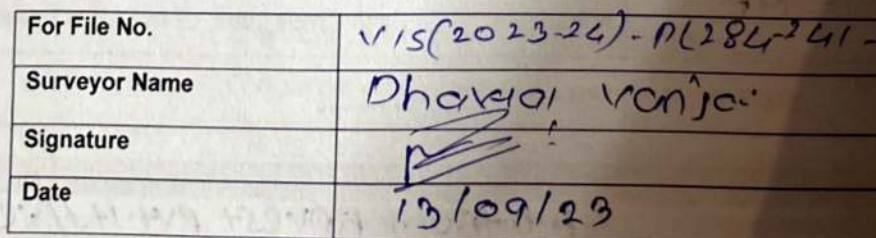 For File No. VIS(2023-24)-PL284-241-
Surveyor Name Dhaval Vanjar
Signature
Date 13/09/23